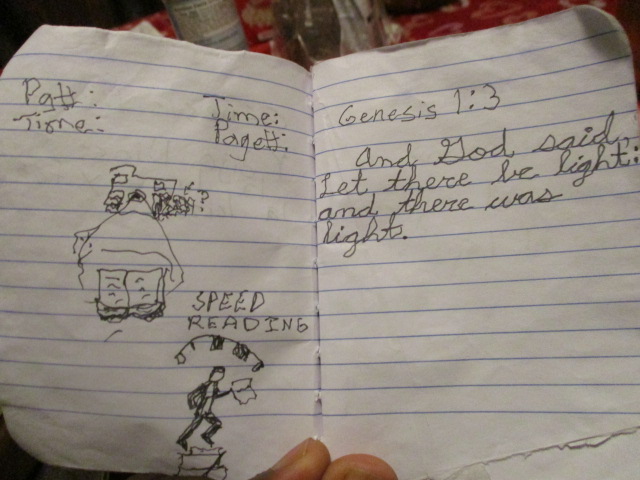 Pg#:
Time:
Time:
Page#:
?
SPEED
READING
Genesis 1:3
And God said,
Let there be light:
and there was
light.